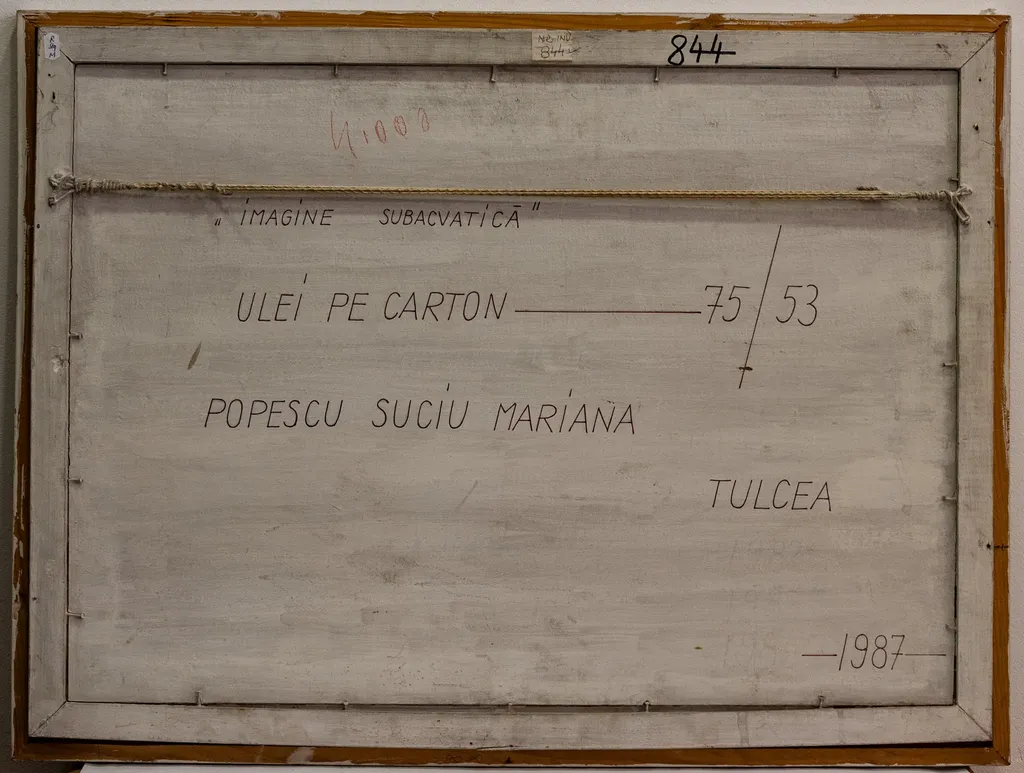 NR. IND.
844
844
„IMAGINE SUBACVATICĂ"
ULEI PE CARTON — 75/53
POPESCU SUCIU MARIANA
TULCEA
—1987—